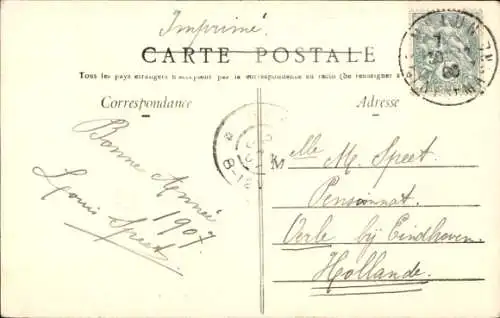 Imprimé.
CARTE POSTALE
Tous les pays étrangers n'acceptent pas la correspondance au recto (Se renseigner
Correspondance
Adresse
Bonne Année
1907.
Louis Speet.
Melle M. Speet.
Pensionnat.
Eerle bij Eindhoven.
Hollande.
MELUN